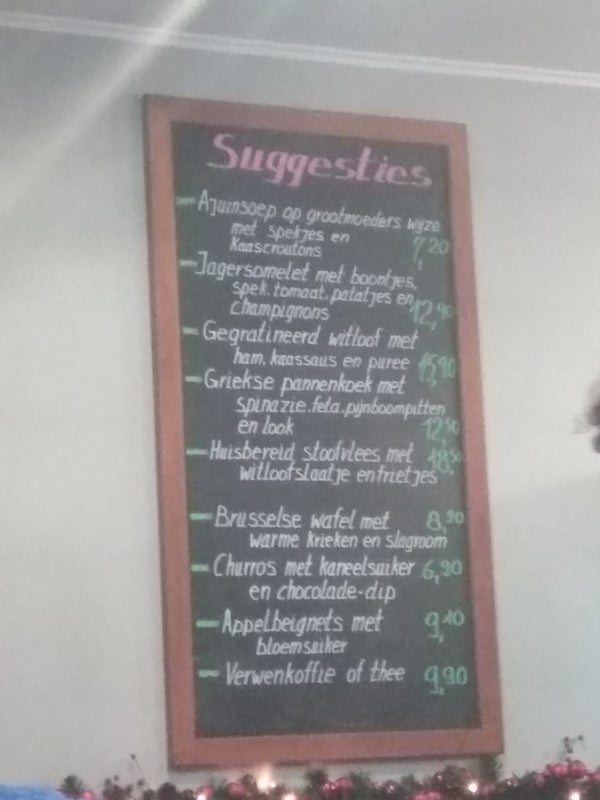 Suggesties
- Ajuinsoep op grootmoeders wijze
met spekjes en
kaascroutons 9,20
- Jagersomelet met boontjes,
spek, tomaat, patatjes en
champignons 12,90
- Gegratineerd witloof met
ham, kaassaus en puree 15,90
- Griekse pannenkoek met
spinazie, feta, pijnboompitten
en look 12,50
- Huisbereid stoofvlees met 18,50
witloofslaatje en frietjes
- Brusselse wafel met 8,90
warme krieken en slagroom
- Churros met kaneelsuiker 6,90
en chocolade-dip
- Appelbeignets met 9,10
bloemsuiker
- Verwenkoffie of thee 9,90